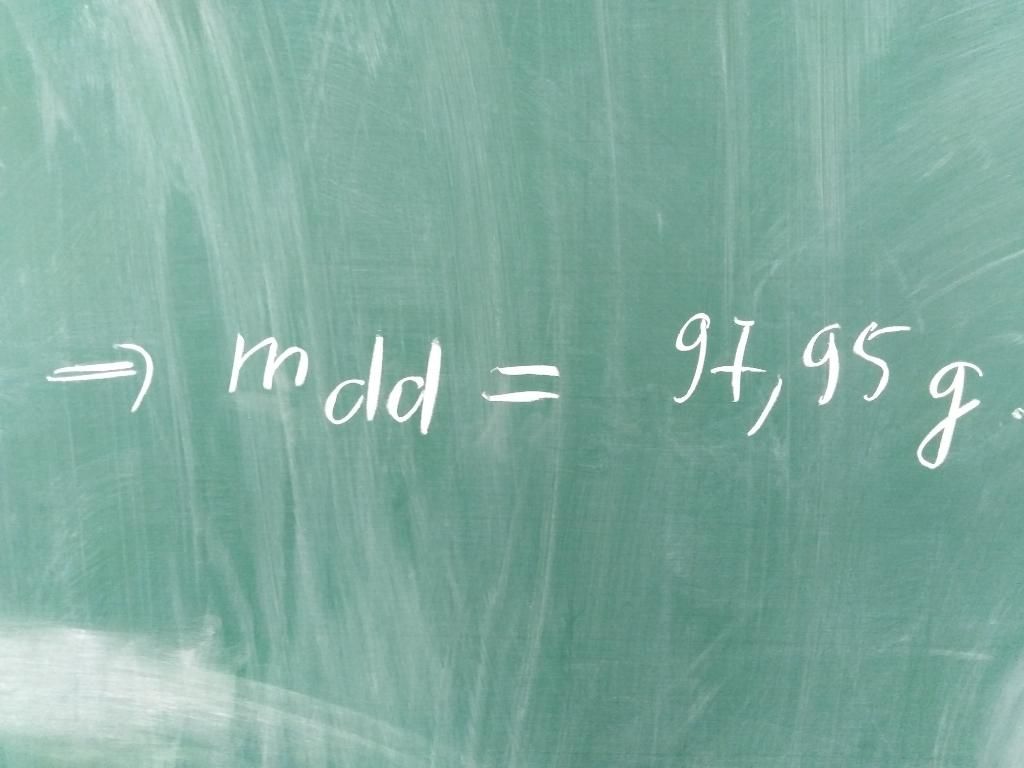 ⇒ mdd = 97,95 g.